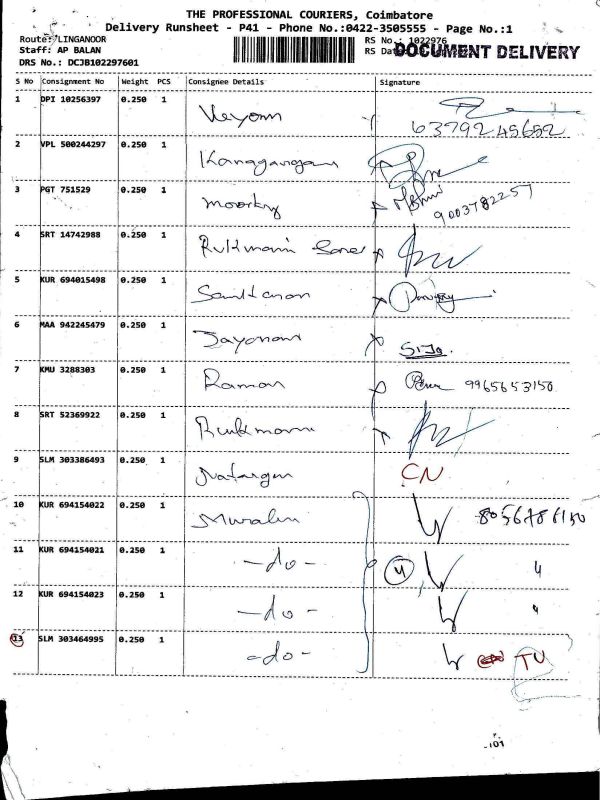 THE PROFESSIONAL COURIERS, Coimbatore
Delivery Runsheet - P41 - Phone No.:0422-3505555 - Page No.:1
Route: LINGANOOR RS No.: 1022976
Staff: AP BALAN RS Dat DOCUMENT DELIVERY
DRS No.: DCJB102297601
S No Consignment No Weight PCS Consignee Details Signature
1 DPI 10256397 0.250 1
2 VPL 500244297 0.250 1
3 PGT 751529 0.250 1 moorthy 9003782257
4 SRT 14742988 0.250 1 Rukmani
5 KUR 694015498 0.250 1 Sankaran
6 MAA 942245479 0.250 1 Jayaram
7 KMU 3288303 0.250 1 Raman 9965653150
8 SRT 52369922 0.250 1 Rukmani
9 SLM 303386493 0.250 1 Natargen CN
10 KUR 694154022 0.250 1 8056786150
11 KUR 694154021 0.250 1 -do- 4 "
12 KUR 694154023 0.250 1 -do- "
13 SLM 303464995 0.250 1 -do- TU